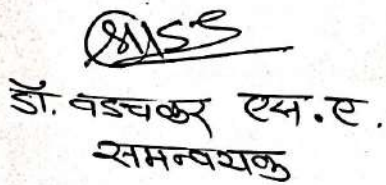 डॉ. वडचकर एस.ए.
समन्वयक